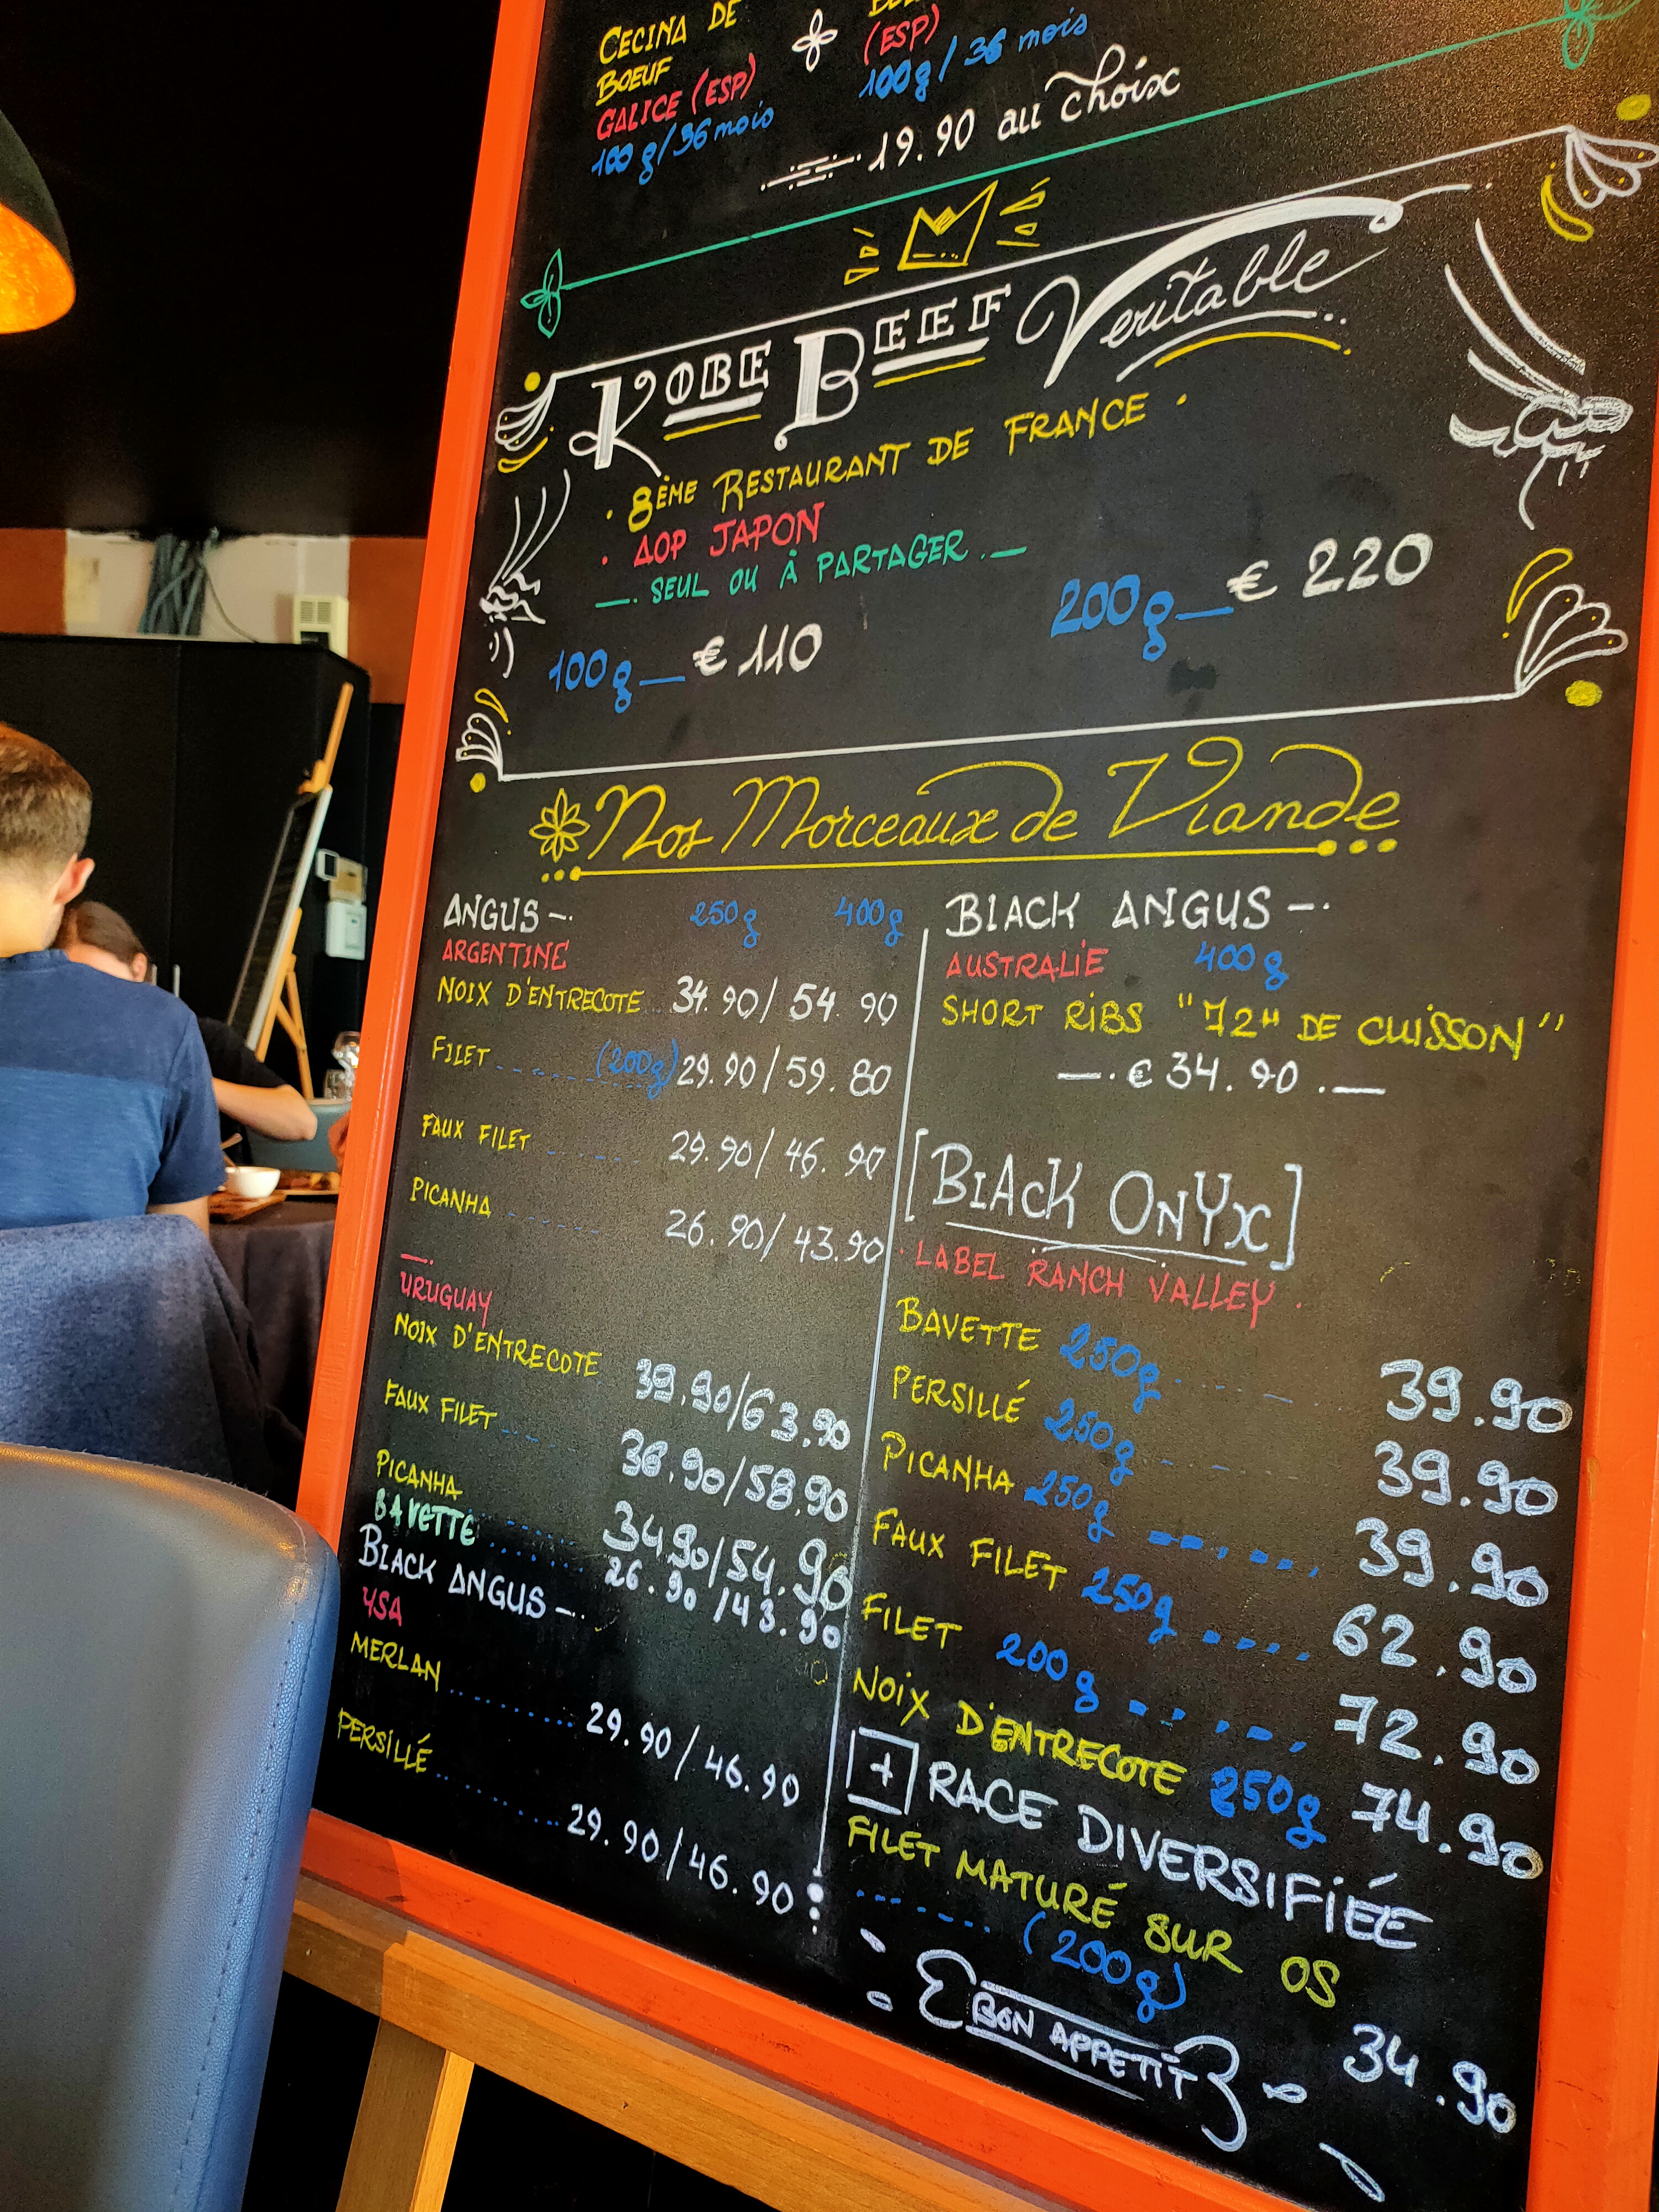 CECINA DE
BOEUF
GALICE (ESP)
100g/36 mois
(ESP)
100g/36 mois
19.90 au choix
KOBE BEEF Veritable
· 8ÈME RESTAURANT DE FRANCE ·
· AOP JAPON
—. SEUL OU À PARTAGER .—
100g — € 110
200g — € 220
Nos Morceaux de Viande
ANGUS —. 250g 400g
ARGENTINE
NOIX D'ENTRECOTE 34.90/54.90
FILET (200g) 29.90/59.80
FAUX FILET 29.90/46.90
PICANHA 26.90/43.90
URUGUAY
NOIX D'ENTRECOTE 39.90/63.90
FAUX FILET 36.90/58.90
PICANHA 34.90/54.90
BAVETTE 26.90/43.90
BLACK ANGUS —.
USA
MERLAN 29.90/46.90
PERSILLÉ 29.90/46.90
BLACK ANGUS —.
AUSTRALIE 400g
SHORT RIBS "72H DE CUISSON"
—. € 34.90 .—
[BLACK ONYX]
· LABEL RANCH VALLEY ·
BAVETTE 250g 39.90
PERSILLÉ 250g 39.90
PICANHA 250g 39.90
FAUX FILET 250g 62.90
FILET 200g 72.90
NOIX D'ENTRECOTE 250g 74.90
+ RACE DIVERSIFIÉE
FILET MATURÉ SUR OS
(200g) 34.90
BON APPETIT